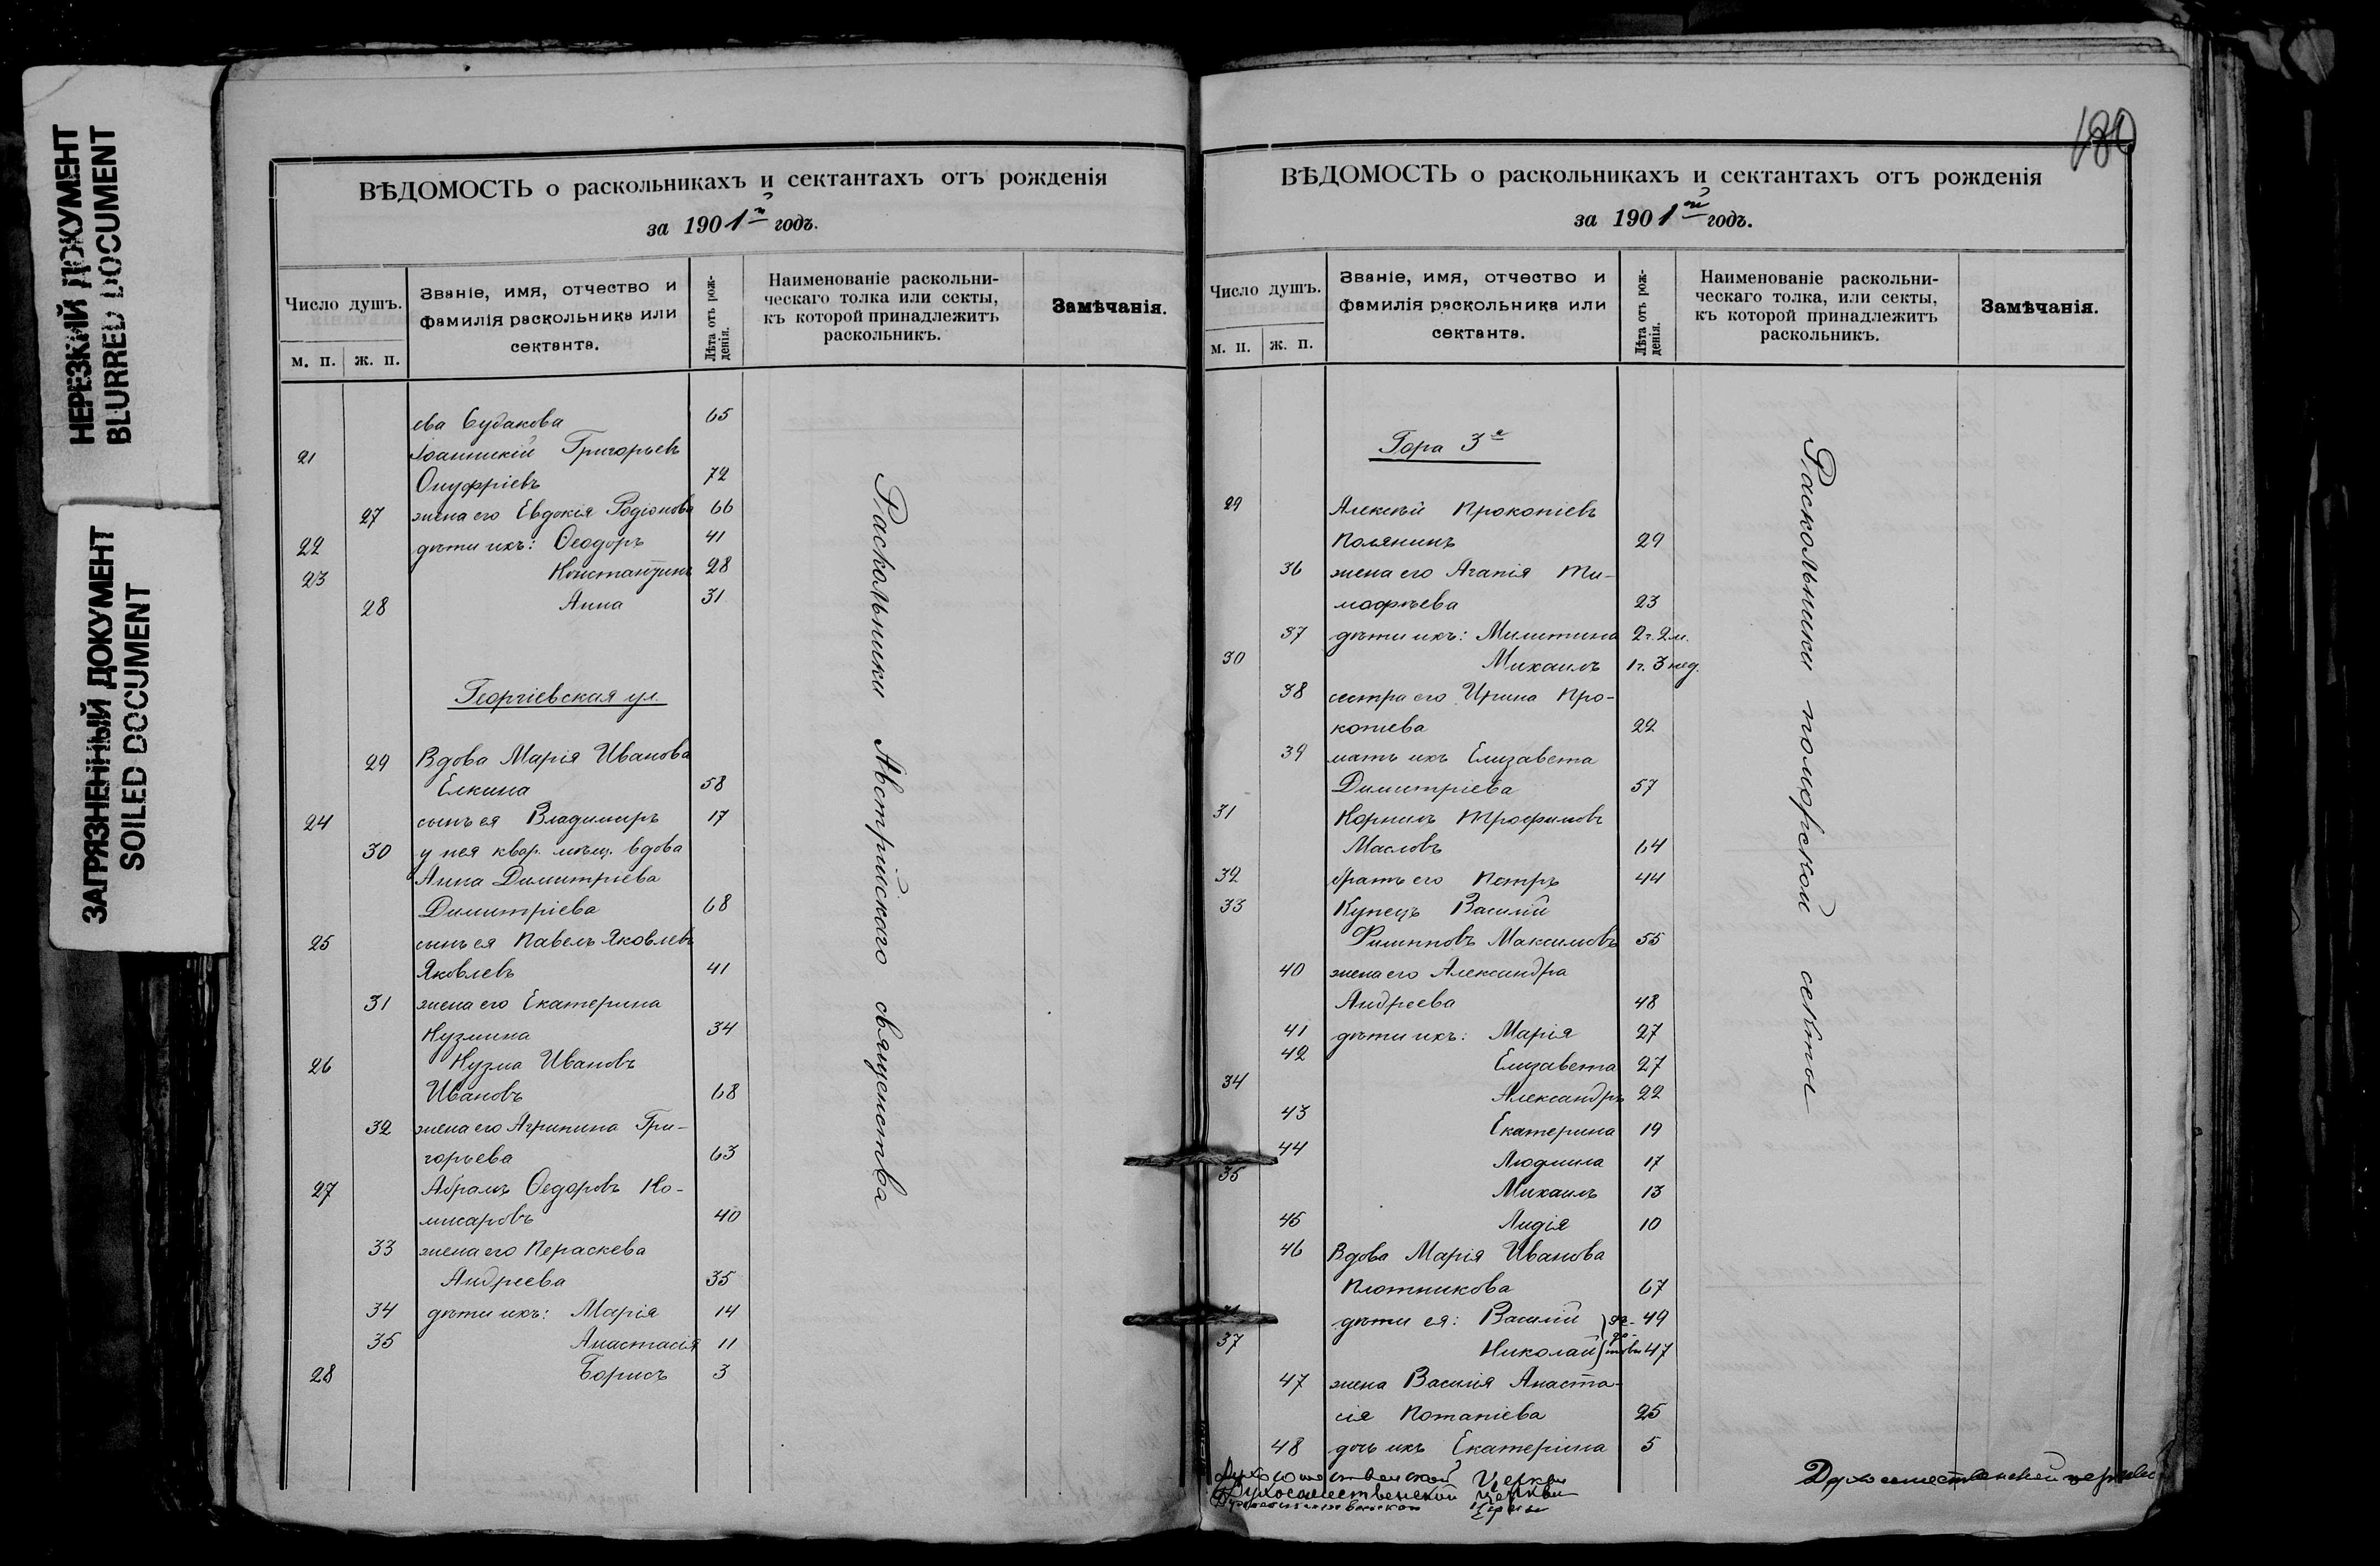 НЕРЕЗКИЙ ДОКУМЕНТ
BLURRED DOCUMENT
ЗАГРЯЗНЕННЫЙ ДОКУМЕНТ
SOILED DOCUMENT
ВѢДОМОСТЬ о раскольникахъ и сектантахъ отъ рожденія
за 1901й годъ.
Число душъ.
м. п. ж. п.
Званіе, имя, отчество и
фамилія раскольника или
сектанта.
Лѣта отъ рож-
денія.
Наименованіе раскольни-
ческаго толка или секты,
къ которой принадлежитъ
раскольникъ.
Замѣчанія.
ева Будакова 65
21 Іоанникій Григорьевъ
Онуфріевъ 72
27 жена его Евдокія Родіонова 66
22 дѣти ихъ: Ѳеодоръ 41
23 Константинъ 28
28 Анна 31
Георгіевская ул.
29 Вдова Марія Иванова
Елкина 58
24 сынъ ея Владимиръ 17
30 у нея квар. мѣщ. вдова
Анна Димитріева
Димитріева 68
25 сынъ ея Павелъ Яковлевъ
Яковлевъ 41
31 жена его Екатерина
Кузмина 34
26 Кузма Ивановъ
Ивановъ 68
32 жена его Агрипина Гри-
горьева 63
27 Абрамъ Ѳедоровъ Ко-
мисаровъ 40
33 жена его Пераскева
Андреева 35
34 дѣти ихъ: Марія 14
35 Анастасія 11
28 Борисъ 3
Раскольники Австрійскаго священства
180
ВѢДОМОСТЬ о раскольникахъ и сектантахъ отъ рожденія
за 1901й годъ.
Число душъ.
м. п. ж. п.
Званіе, имя, отчество и
фамилія раскольника или
сектанта.
Лѣта отъ рож-
денія.
Наименованіе раскольни-
ческаго толка, или секты,
къ которой принадлежитъ
раскольникъ.
Замѣчанія.
Гора 3я
29 Алексѣй Прокопіевъ
Полянинъ 29
36 жена его Агапія Ти-
мофѣева 23
37 дѣти ихъ: Милитина 2г. 2м.
30 Михаилъ 1г. 3 нед.
38 сестра его Ирина Про-
копиева 22
39 мать ихъ Елизавета
Димитріева 57
31 Корнилъ Трофимовъ
Масловъ 64
32 братъ его Петръ 44
33 Купецъ Василій
Филипповъ Максимовъ 55
40 жена его Александра
Андреева 48
41 дѣти ихъ: Марія 27
42 Елизавета 27
34 Александръ 22
43 Екатерина 19
44 Людмила 17
35 Михаилъ 13
45 Лидія 10
46 Вдова Марія Иванова
Плотникова 67
дѣти ея: Василій 49
37 Николай 47
47 жена Василія Анаста-
сія Потапіева 25
48 дочь ихъ Екатерина 5
Раскольники поморской секты
Духосошественской Церкви
Духосошественской церкви
Духосошественской Церкви
Духосошественской церкви